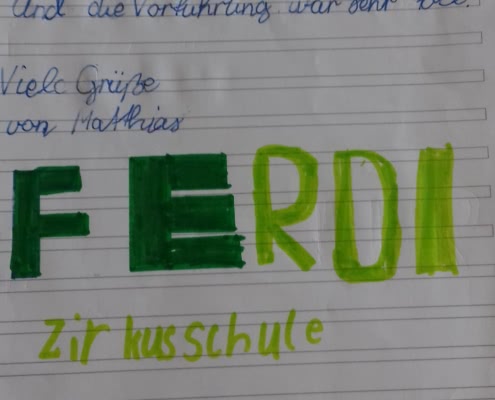 Und die Vorführung war sehr toll.
Viele Grüße
von Matthias
FERDI
zirkusschule